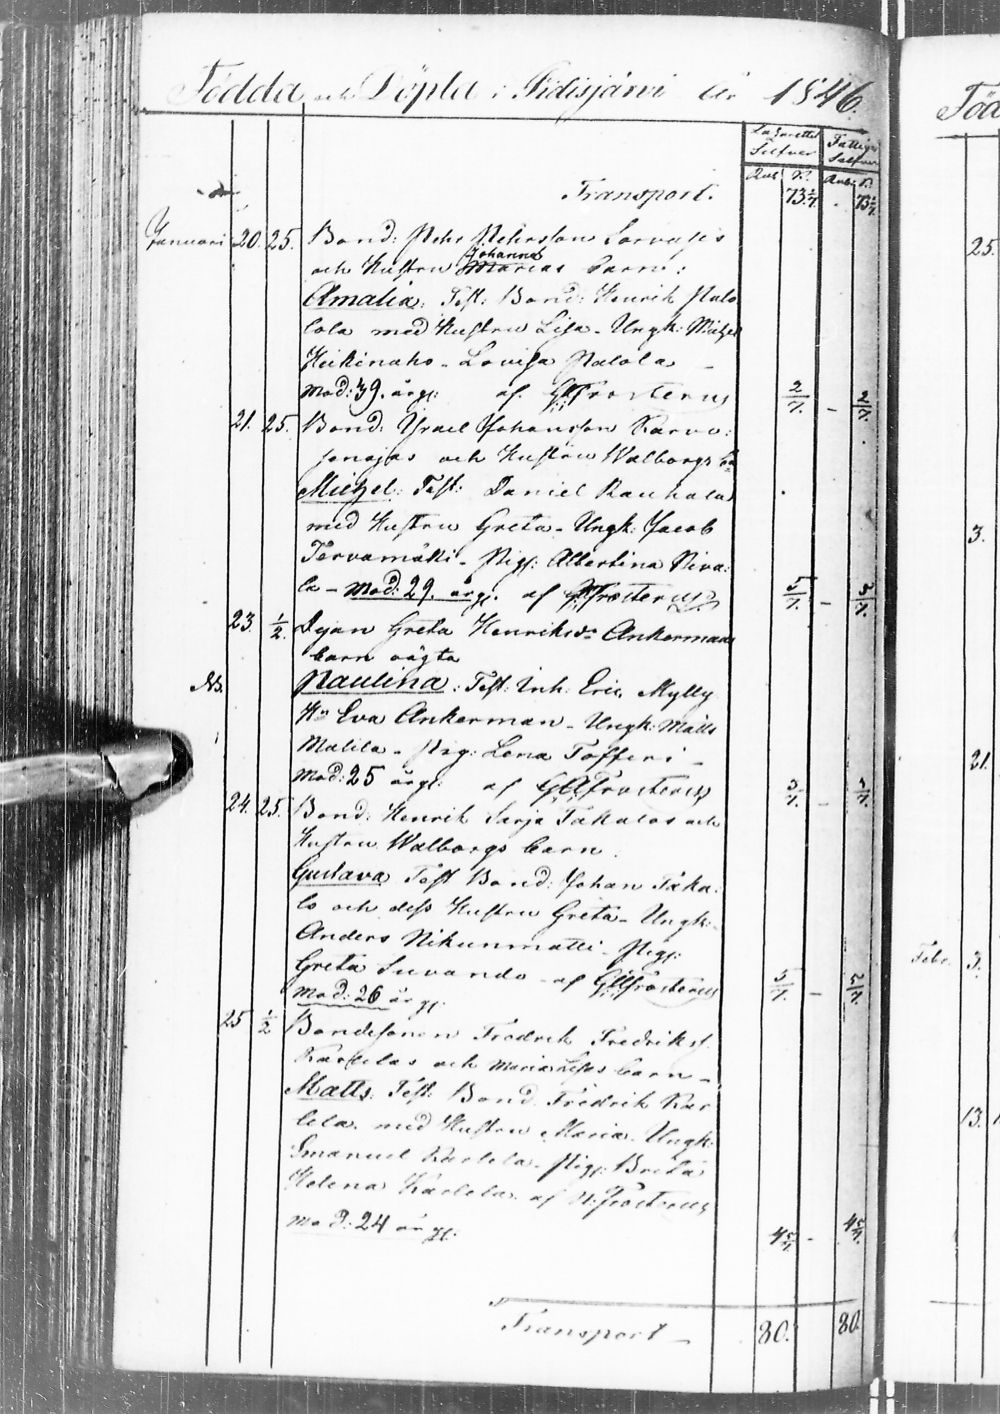 Födda och Döpta i Pidisjärvi År 1846.
Lazaretts Silfver Fattigas Silfver
Rub. K. Rub. K.
Transport. 73 2/7. 73 2/7.
Januari 20. 25. Bond: Pehr Pehrsson Sorvajas
Johanna
och Hustru Marias barn:
Amalia: Test: Bond: Henrik Palo
lola med Hustru Lisa - Ungk: Michel
Heikinaho - Lovisa Palola -
Mod: 39. årg: af. Frosterus 2/7. - 2/7.
21. 25. Bond: Israel Johansson Karvo:
sonojas och Hustru Walborgs
Michel: Test: Daniel Rauhala
med Hustru Greta - Ungk: Jacob
Tervamäki - Pig: Albertina Niva:
la - Mod: 29. årg. af Frosterus 5/7. - 5/7.
23. 1/2. Dejan Greta Henriksdr Ankermans
barn oägta
NB. Paulina: Test: Inh: Eric Mylly
Hu Eva Ankerman - Ungk: Matts
Malila - Pig: Lena Tofferi -
Mod: 25 årg: af Frosterus
24. 25. Bond: Henrik Sarja Takalos och
Hustru Walborgs barn
Gustava Test Bond: Johan Taka:
lo och dess Hustru Greta - Ungk:
Anders Nikunmatti - Pig:
Greta Suvando - af Frosterus 5/7. -
Mod: 26 årg.
25 1/2 Bondesonen Fredrik Fredrikss.
Karlelas och Maria Lisas barn -
Matts. Test: Bond. Fredrik Kar
lela. med Hustru Maria. Ungk:
Emanuel Karlela. Pig: Brita
Helena Karlela. af Frosterus
Mod: 24 årg. 4 5/7. - 4 5/7.
Transport - 80. 80.
Föd
25.
3.
21.
Febr. 3.
13.